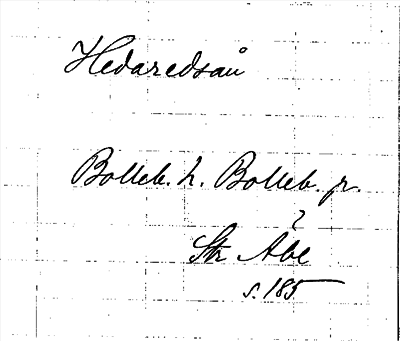 Hedaredsån
Bolleb. h. Bolleb. jr.
?
Str Åbe
s. 185